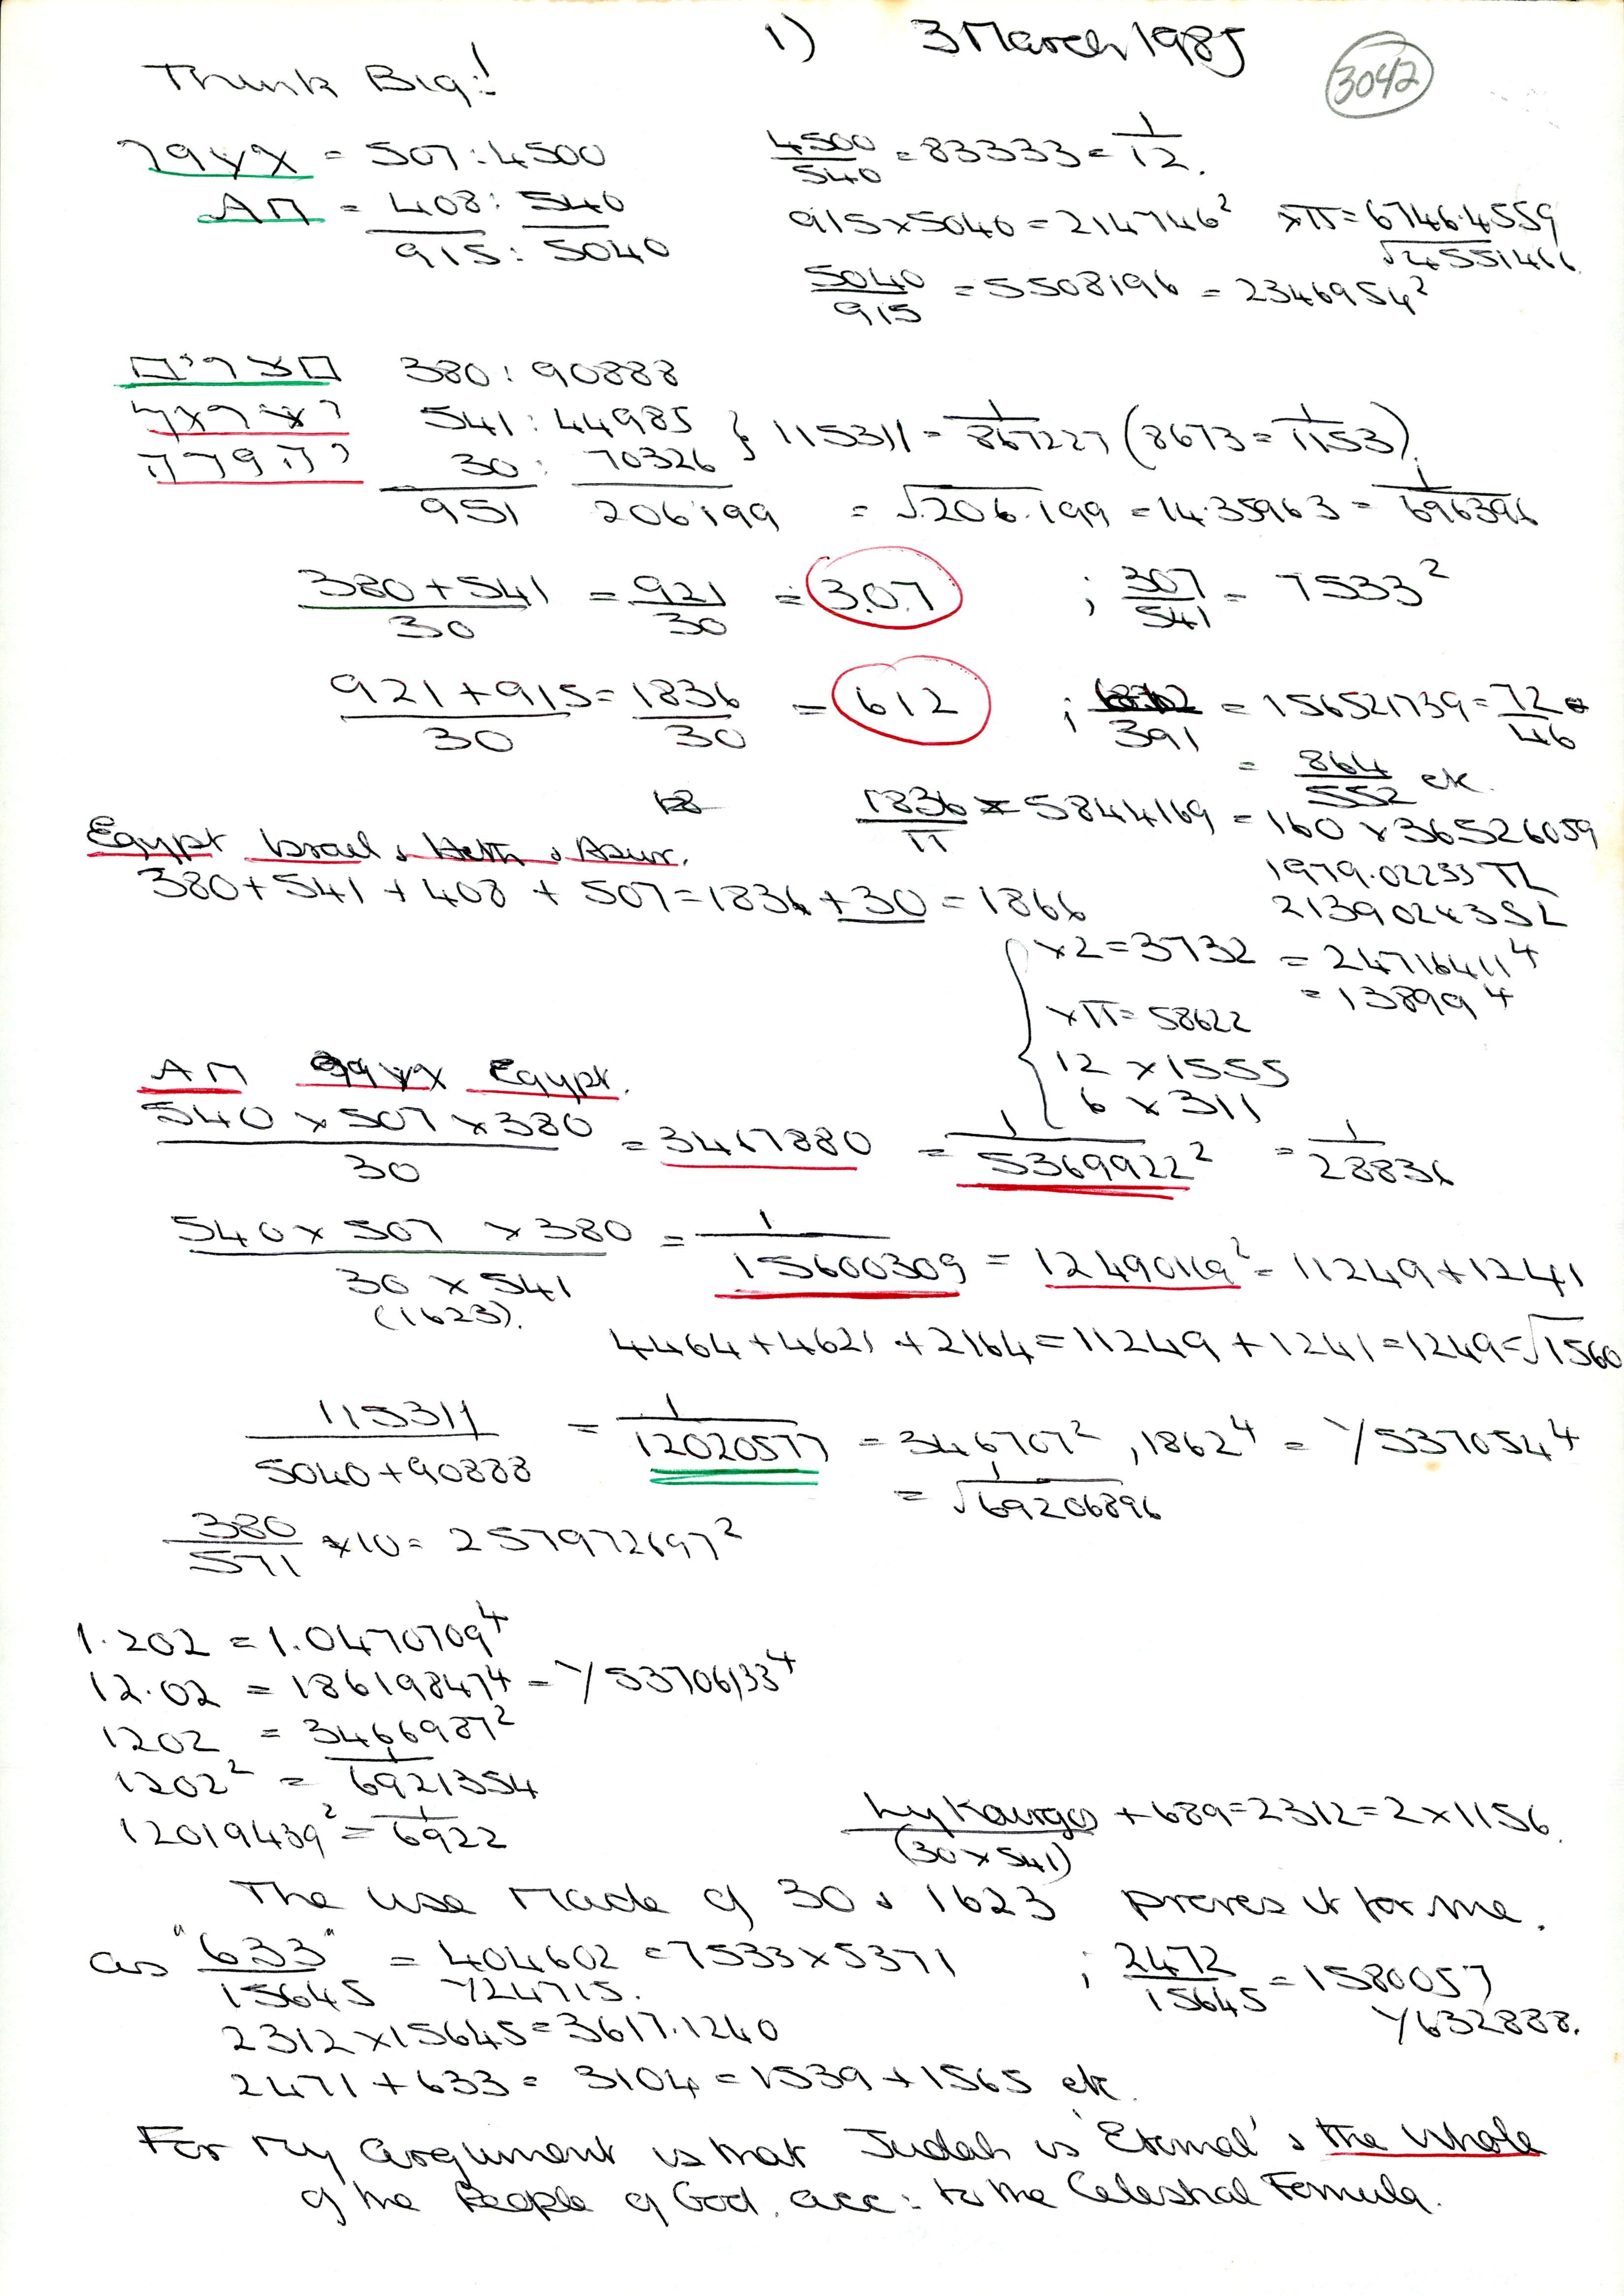 1) 3 March 1985
3042
Think Big!
= 507 : 4500
= 408 : 540
915 : 5040
4500/540 = 83333 = 1/12.
915 x 5040 = 214746² xπ = 6746.4559
√4551466
5040/915 = 5508196 = 2346954²
מצרים 380 : 90888
541 : 44985
30 : 70326
} 115311 = 1/867227 (8673 = 1/1153)
951 206199 = √206.199 = 14.35963 = 1/696396
380 + 541/30 = 921/30 = 3.0.7 ; 307/541 = 7533²
921 + 915/30 = 1836/30 = 612 ; /391 = 156521739 = 72/46
= 864/552 etc.
1836/π = 5844169 = 160 x 36526059
1979.02233 TL
21390243 SL
Egypt Israel, Heth, Asur.
380 + 541 + 408 + 507 = 1836 + 30 = 1866
x2 = 3732 = 24716411⁴
= 13899⁴
xπ = 58622
12 x 1555
6 x 311
Egypt.
540 x 507 x 380/30 = 3467880 = 1/5369922² = 1/28836
540 x 507 x 380/30 x 541 = 1/15600309 = 12490119² = 11249 + 1241
(1623).
4464 + 4621 + 2164 = 11249 + 1241 = 1249 = √1560
115311/5040 + 90888 = 1/12020577 = 346707², 1862⁴ = 1/537054⁴
= 1/√69206896
380/571 x 10 = 257972697²
1.202 = 1.0470709⁴
12.02 = 18619847⁴ = 1/53706133⁴
1202 = 3466987²
1202² = 1/6921354
12019439² = 1/6922
Lykourgos/(30 x 541) + 689 = 2312 = 2 x 1156.
The use made of 30 & 1623 proves it for me.
as "633"/15645 = 404602 = 7533 x 5371 ; 2472/15645 = 1580057
1/24715. 1/632888.
2312 x 15645 = 3617.1240
2471 + 633 = 3104 = 1539 + 1565 etc.
For my argument is that Judah is 'Eternal' & the whole
of the People of God, acc: to the Celestial Formula.